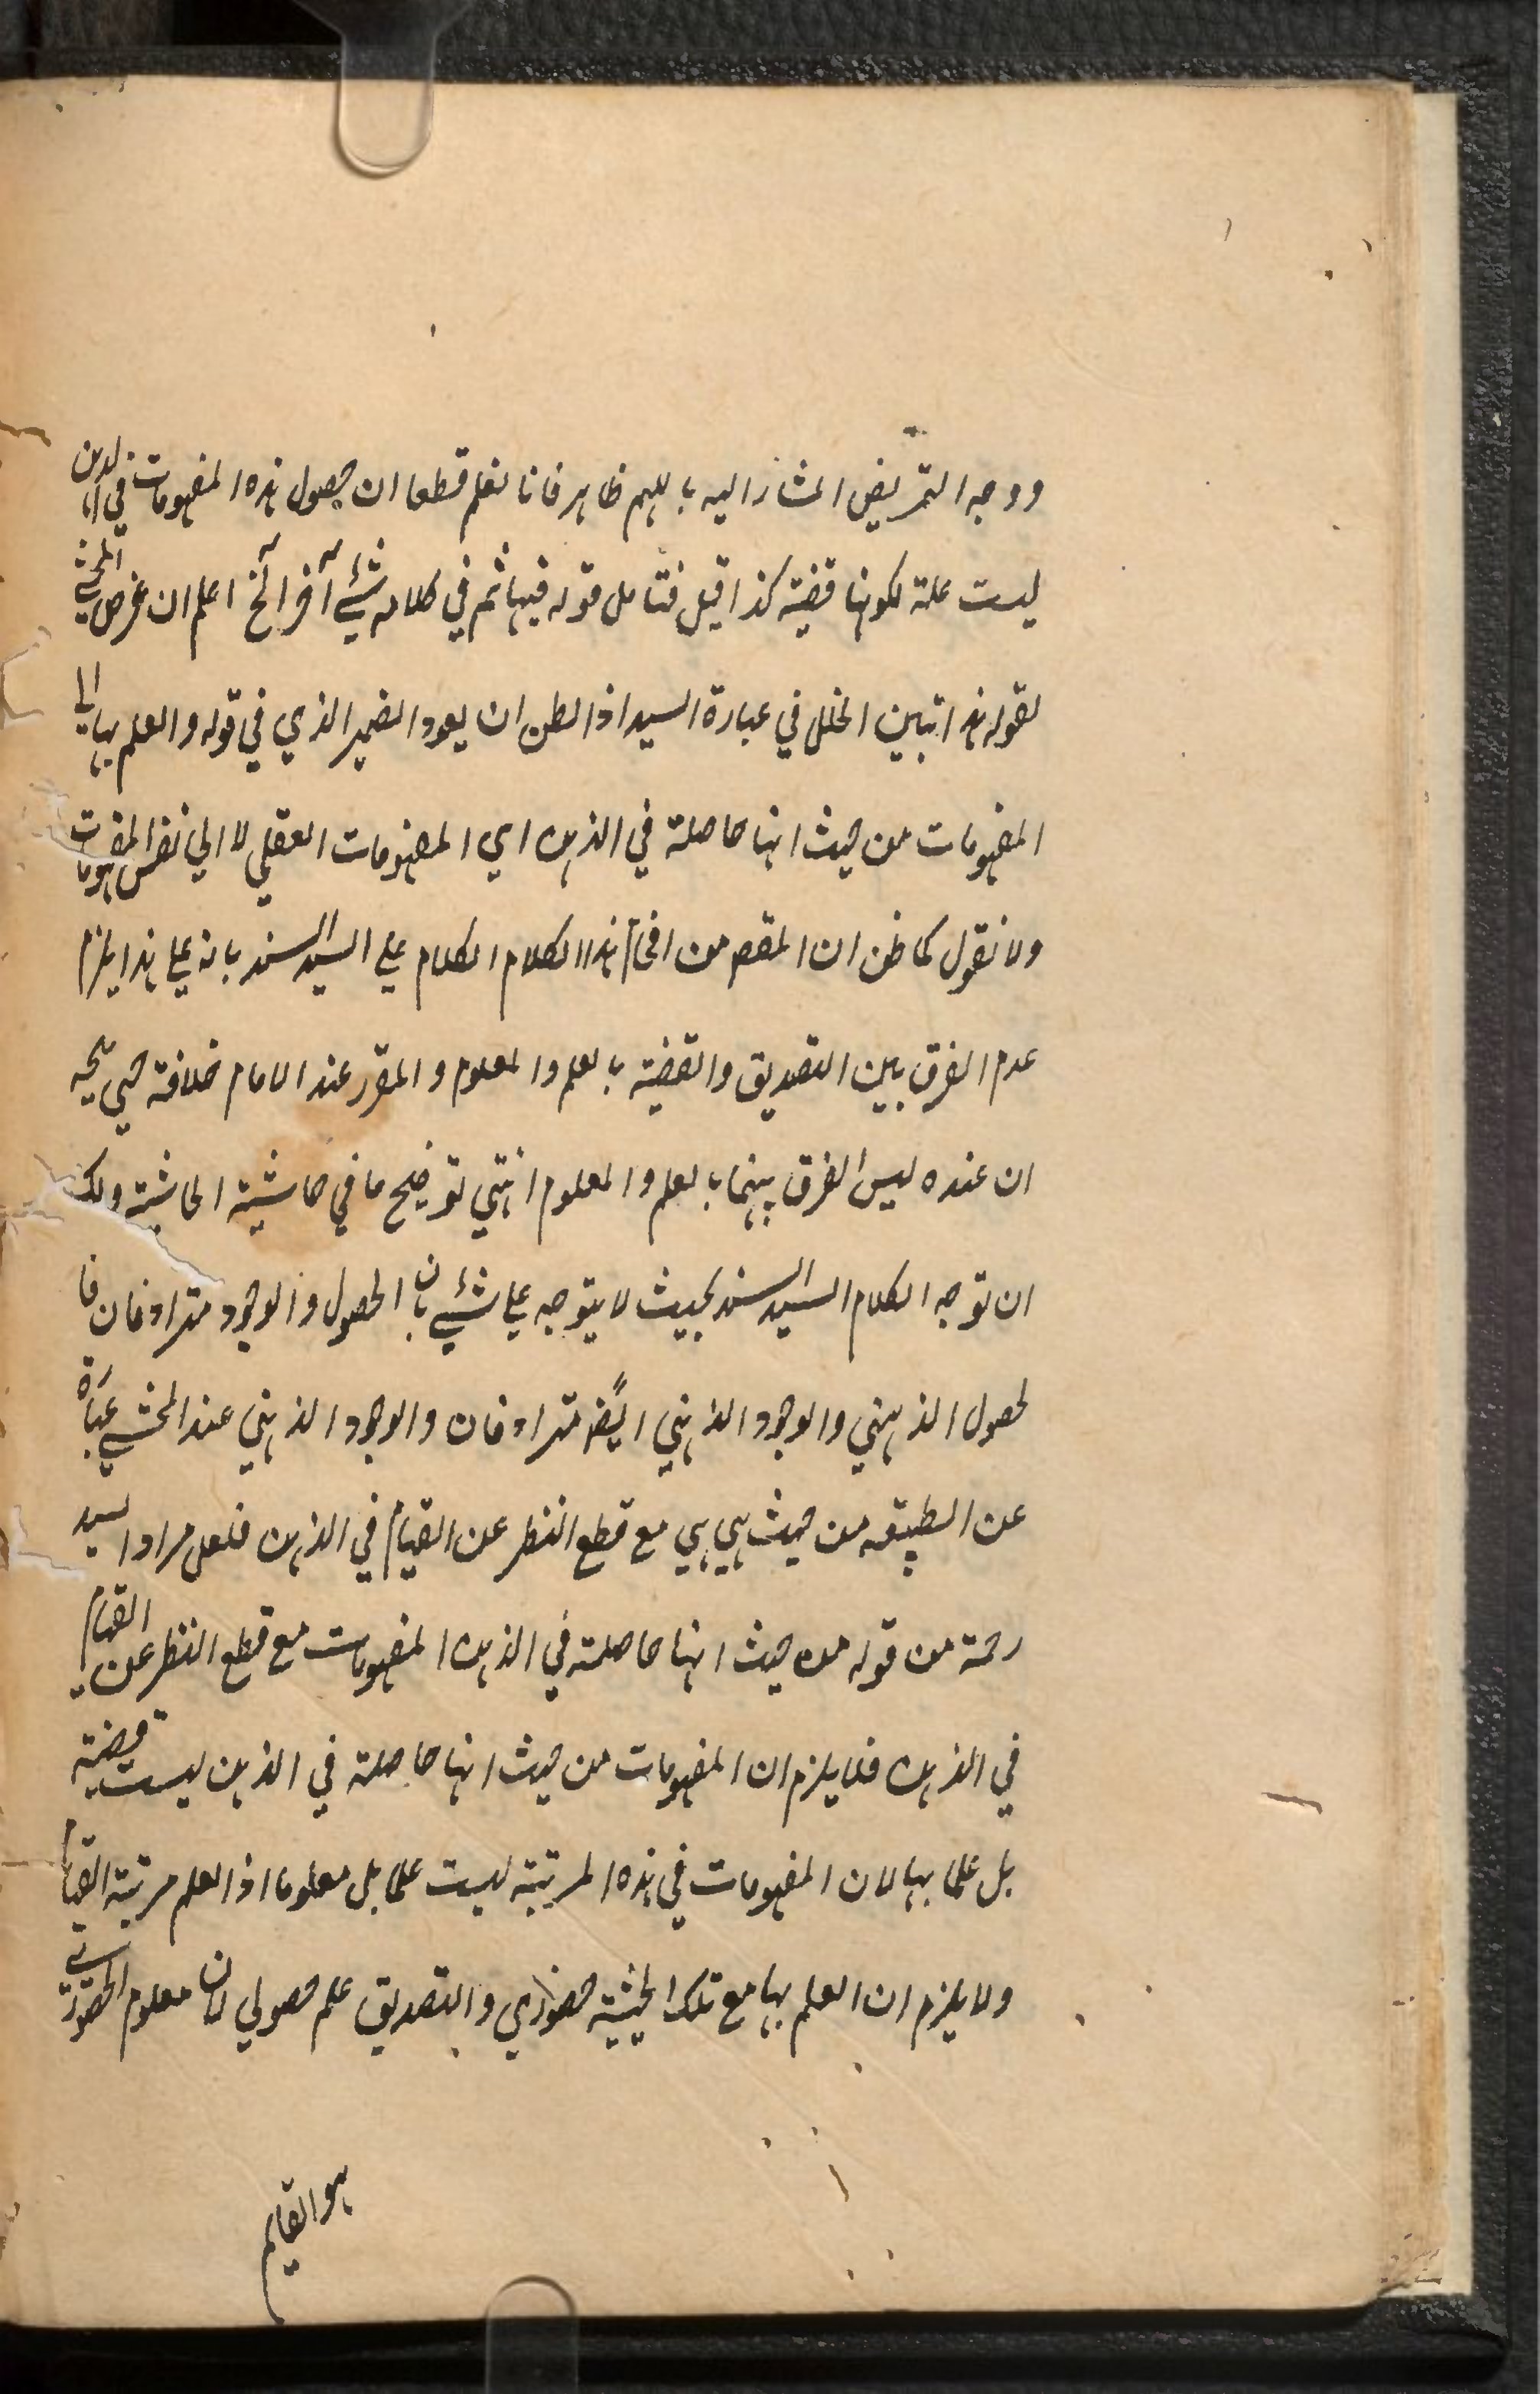 ووجه التمريض المشار اليه باللهم ظاهر فانا نعلم قطعا ان حصول هذه المفهومات في الذهن
ليست علة لكونها قضية كذا قيل فتامل قوله فيها ثم في كلامه شئ آخر آلخ اعلم ان غرض المحشي
بقوله هذا تبين الخلل في عبارة السيد اذ الظن ان يعود الضمير الذي في قوله والعلم بها الى
المفهومات من حيث انها حاصلة في الذهن اي المفهومات العقلي لا الي نفس المفهومات
ولا نقول كما ظن ان المقصم من افحام هذا الكلام الكلام علي السيد السند بانه علي هذا يلزم
عدم الفرق بين التصديق والقضية بالعلم والمعلوم والمقرر عند الامام خلافة حتي يتجه
ان عنده ليس الفرق بينهما بالعلم والمعلوم انتهي توضيح ما في حاشية الحاشية ولك
ان توجه الكلام السيد السند بحيث لا يتوجه علي شئ بان الحصول والوجود مترادفان فا
لحصول الذهني والوجود الذهني ايضً مترادفان والوجود الذهني عند المحشي عبارة
عن الطبيعة من حيث هي هي مع قطع النظر عن القيام في الذهن فلعل مراد السيد
رحمة من قوله من حيث انها حاصلة في الذهن المفهومات مع قطع النظر عن القيام
في الذهن فلا يلزم ان المفهومات من حيث انها حاصلة في الذهن ليست قضية
بل علما بها لان المفهومات في هذه المرتبة ليست علما بل معلوما اذ العلم مرتبة القيام
ولا يلزم ان العلم بها مع تلك الحيثية حضوري والتصديق علم حصولي لان معلوم الحضوري
هو القايم